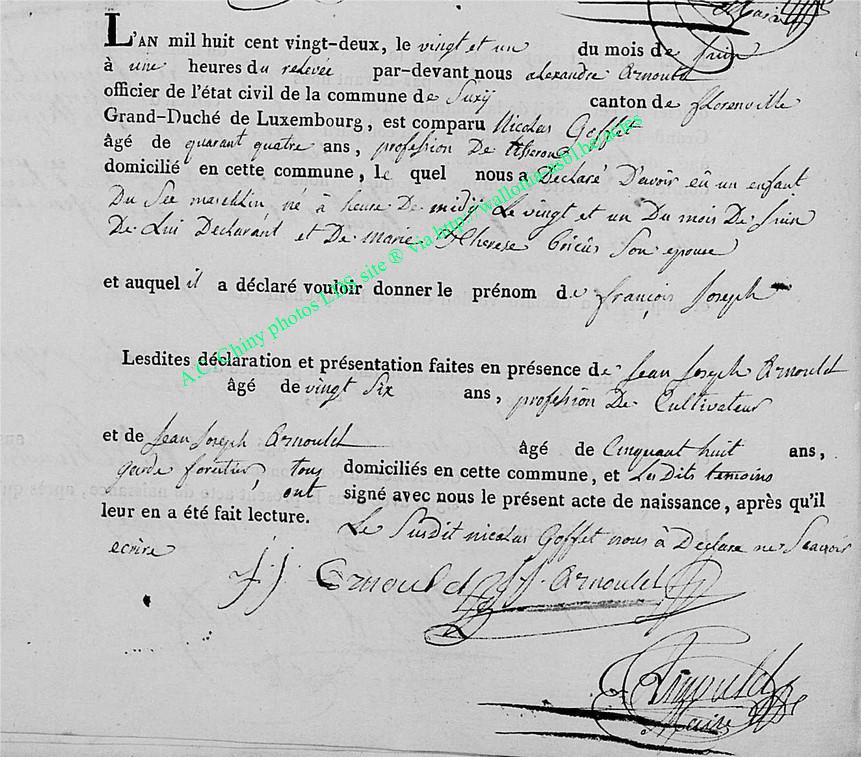 Maire
L'AN mil huit cent vingt-deux, le vingt et un du mois de juin
à une heures du relevée par-devant nous alexandre Arnould
officier de l'état civil de la commune de Suxÿ canton de florenville
Grand-Duché de Luxembourg, est comparu Nicolas Goffet
âgé de quarant quatre ans, profession De tisserond
domicilié en cette commune, le quel nous a Déclaré D'avoir eû un enfant
Du See masculin né à heure De midÿ Le vingt et un Du mois De juin
De Lui Declarant et De marie Therese Son epouse
et auquel il a déclaré vouloir donner le prénom de françois Joseph
Lesdites déclaration et présentation faites en présence de Jean Joseph Arnould
âgé de vingt Six ans, profession De Cultivateur
et de Jean Joseph Arnoulet âgé de Cinquant huit ans,
garde forêtier, tous domiciliés en cette commune, et Les Dits temoins
ont signé avec nous le présent acte de naissance, après qu'il
leur en a été fait lecture. Le Susdit nicolas Goffet nous à Déclare ne Scavoir
ecrire
j j Arnould J J Arnoulet
Arnould
Maire
A.C. Chiny photos LDS site ® via http://wallonica61.be/actes